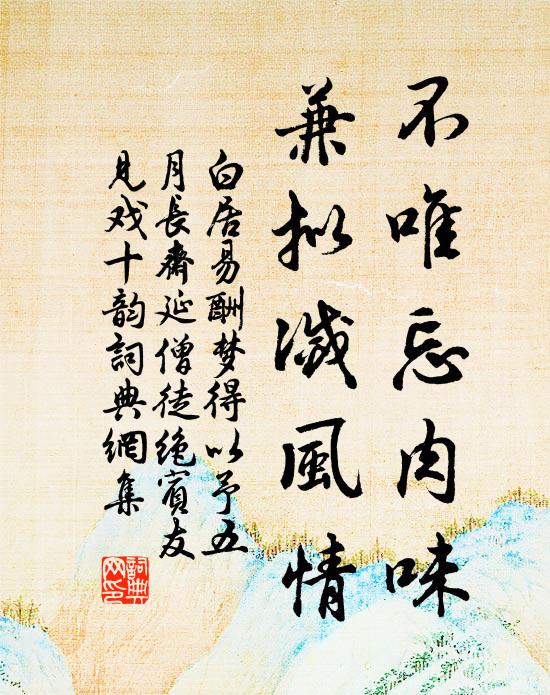 不唯忘肉味
兼拟滅風情
白居易酬梦得以予五
月長齋延僧徒绝賓友
見戏十韵詞典網集
詞典
网印